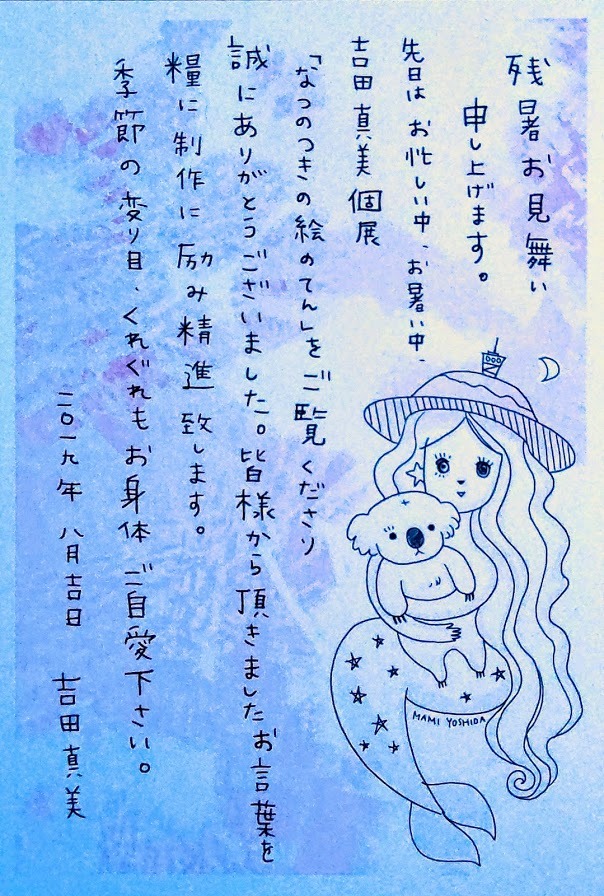 残暑お見舞い
申し上げます。
先日はお忙しい中、お暑い中、
吉田真美個展
「なつのつきの絵のてん」をご覧くださり
誠にありがとうございました。皆様から頂きましたお言葉を
糧に制作に励み精進致します。
季節の変り目、くれぐれもお身体ご自愛下さい。
二〇一九年 八月吉日 吉田真美
MAMI YOSHIDA